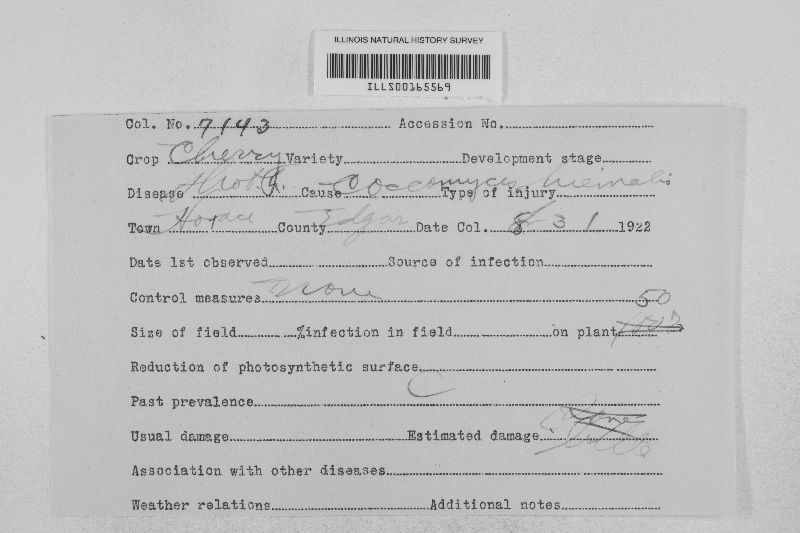 ILLINOIS NATURAL HISTORY SURVEY
ILLS00165569
Col. No. 7143 Accession No.
Crop Cherry Variety Development stage
Disease Shot h. Cause Coccomyces hiemalis Type of injury
Town Horace County Edgar Date Col. 8 31 1922
Date 1st observed Source of infection
Control measures None
50
Size of field %infection in field on plant
Reduction of photosynthetic surface
Past prevalence
Usual damage Estimated damage None
Little
Association with other diseases
Weather relations Additional notes